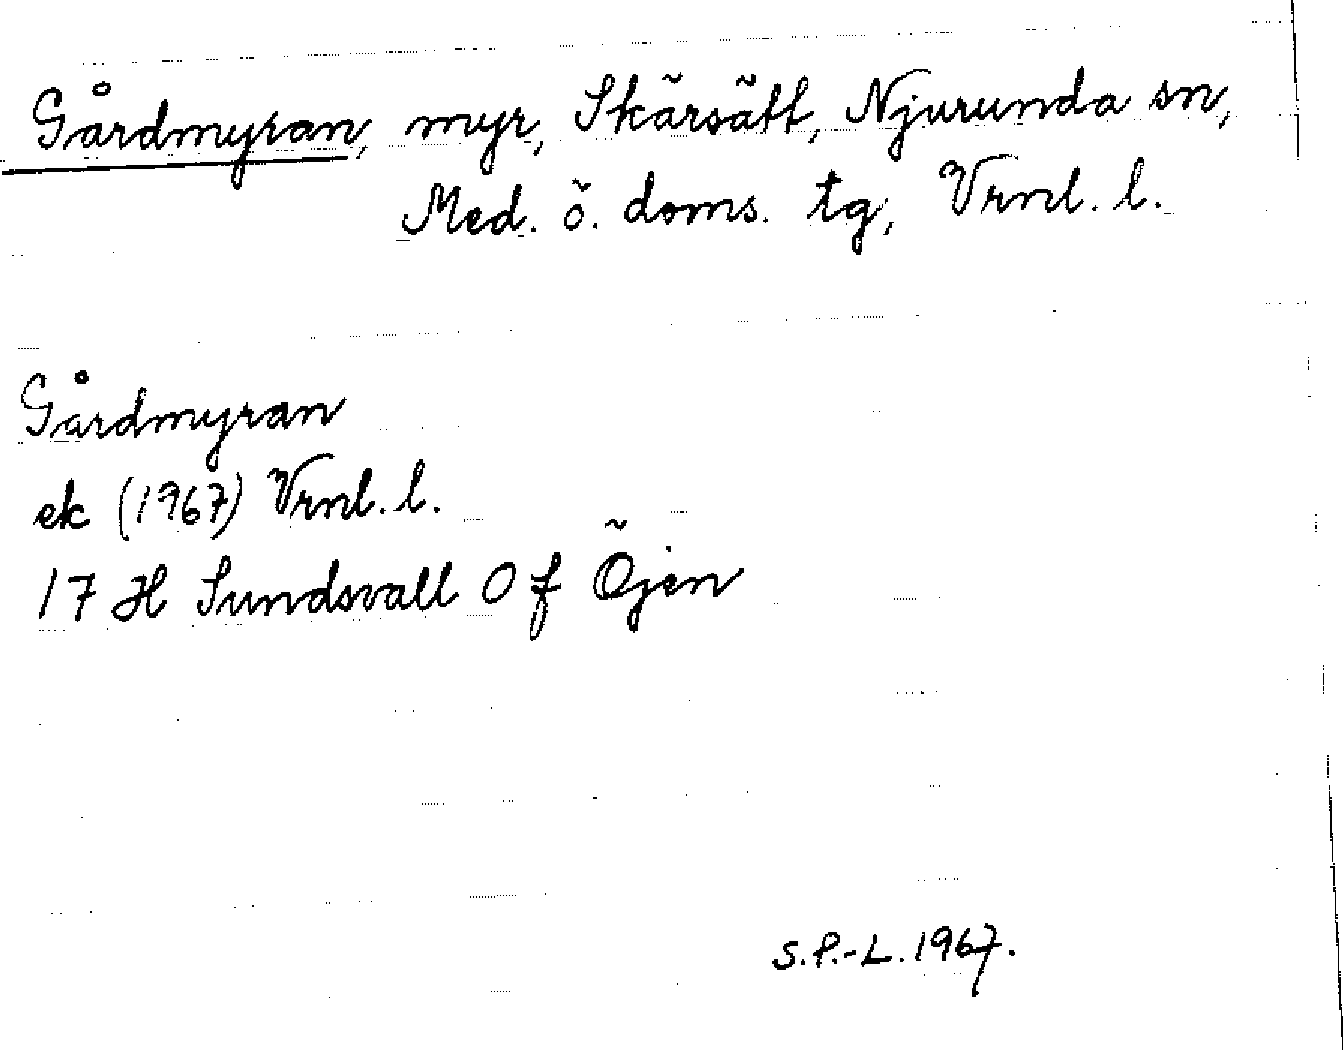 Gårdmyran, myr, Skärsätt, Njurunda sn,
Med. ö. doms. tg, Vrnl. l.
Gårdmyran
ek (1967) Vrnl. l.
17 H Sundsvall O f Öjen
S.P.-L. 1967.